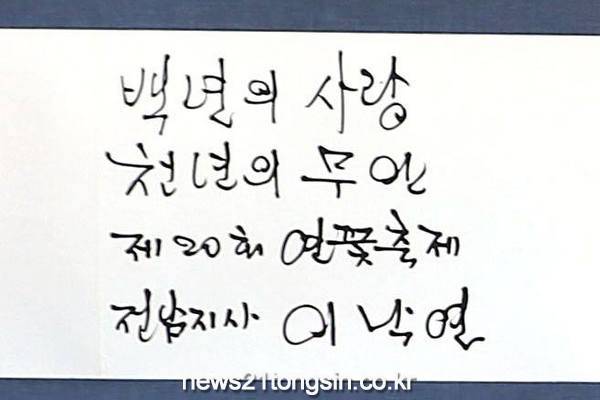 백년의 사랑
천년의 무안
제20회 연꽃축제
전남지사 이낙연
news21tongsin.co.kr